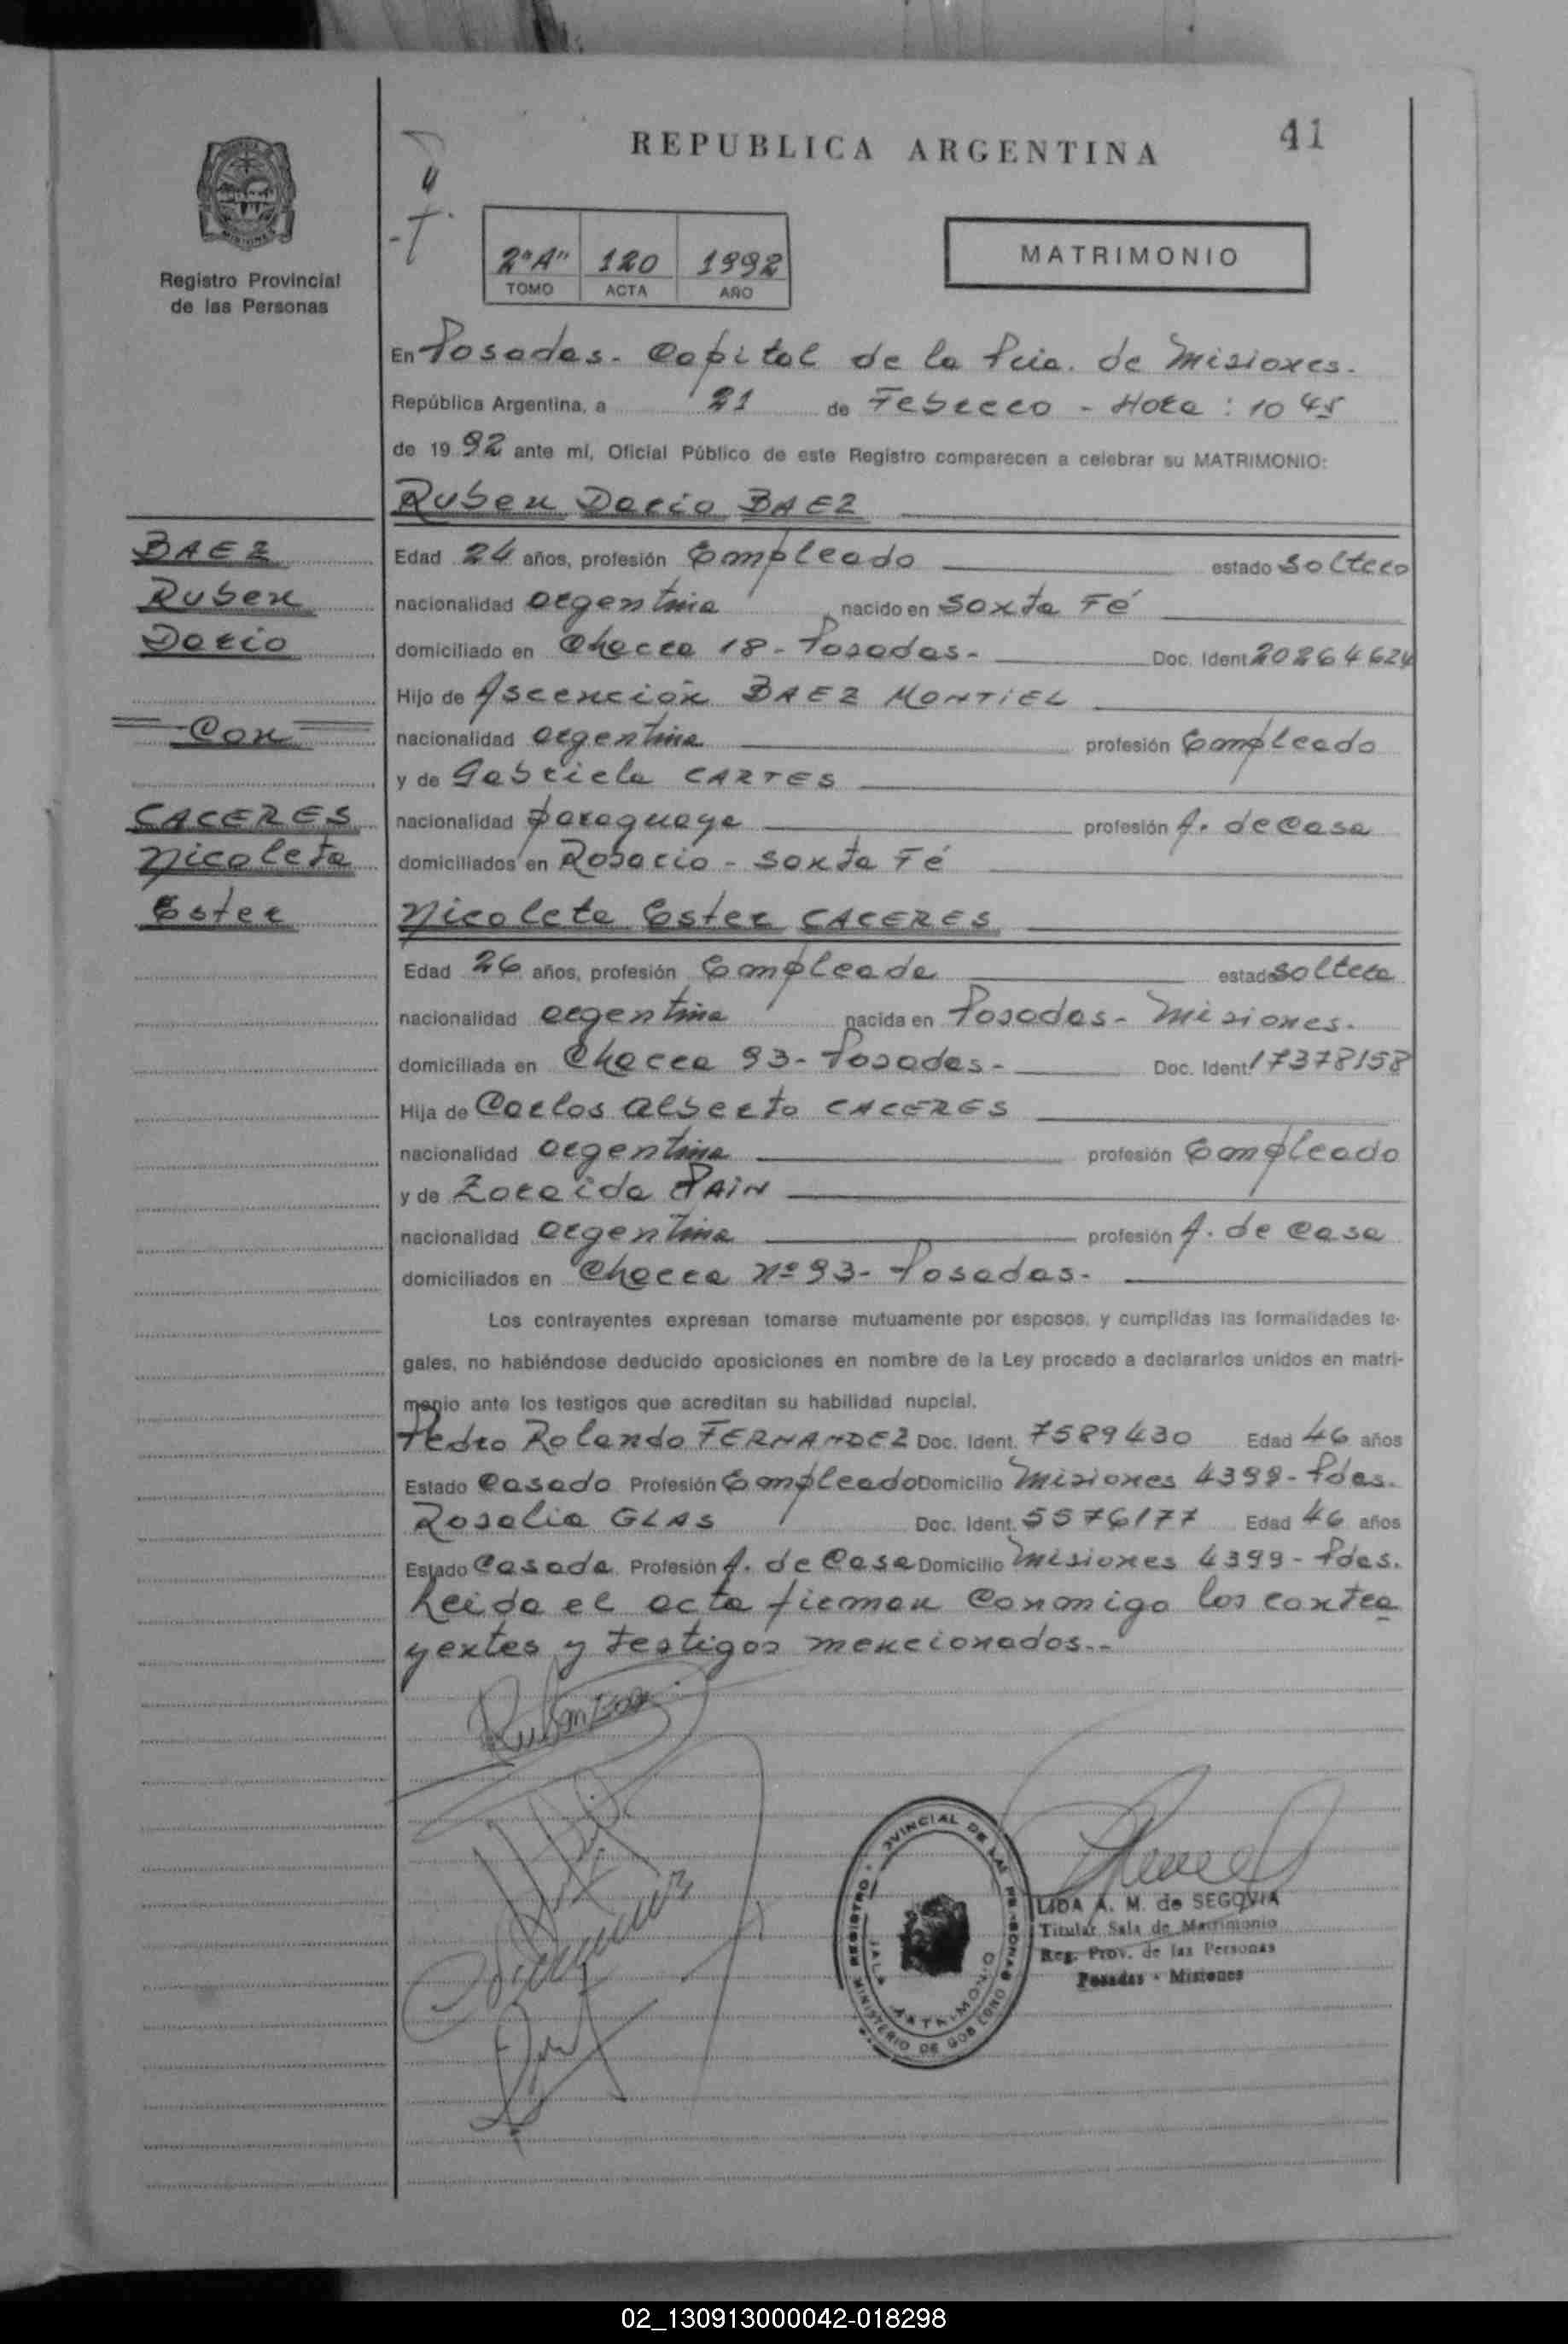 41
REPUBLICA ARGENTINA
MISIONES
Registro Provincial
de las Personas
2º"A" 120 1992
TOMO ACTA AÑO
MATRIMONIO
En Posadas - Capital de la Pcia. de Misiones.
República Argentina, a 21 de Febrero - Hora: 10 45
de 1992 ante mí, Oficial Público de este Registro comparecen a celebrar su MATRIMONIO:
Ruben Dario BAEZ
BAEZ
Ruben
Dario
Con
CACERES
Nicoleta
Ester
Edad 24 años, profesión Empleado estado Soltero
nacionalidad argentina nacido en Santa Fé
domiciliado en Chacra 18 - Posadas - Doc. Ident. 20264624
Hijo de Ascención BAEZ MONTIEL
nacionalidad argentina profesión Empleado
y de Gabriela CARTES
nacionalidad paraguaya profesión A. de Casa
domiciliados en Rosario - Santa Fé
Nicoleta Ester CACERES
Edad 26 años, profesión Empleada estado Soltera
nacionalidad argentina nacida en Posadas - Misiones.
domiciliada en Chacra 93 - Posadas - Doc. Ident. 17378158
Hija de Carlos Alberto CACERES
nacionalidad argentina profesión Empleado
y de Zoraida PAIN
nacionalidad argentina profesión A. de Casa
domiciliados en Chacra Nº 93 - Posadas -
Los contrayentes expresan tomarse mutuamente por esposos, y cumplidas las formalidades le-
gales, no habiéndose deducido oposiciones en nombre de la Ley procedo a declararlos unidos en matri-
monio ante los testigos que acreditan su habilidad nupcial.
Pedro Rolando FERNANDEZ Doc. Ident. 7589430 Edad 46 años
Estado Casado Profesión Empleado Domicilio Misiones 4399 - Pdas.
Rosalia GLAS Doc. Ident. 5576177 Edad 46 años
Estado Casada Profesión A. de Casa Domicilio Misiones 4399 - Pdas.
Leida el acta firman conmigo los contra
yentes y testigos mencionados.-
Ruben Baez
LIDA A. M. de SEGOVIA
Titular Sala de Matrimonio
Reg. Prov. de las Personas
Posadas - Misiones
02_130913000042-018298